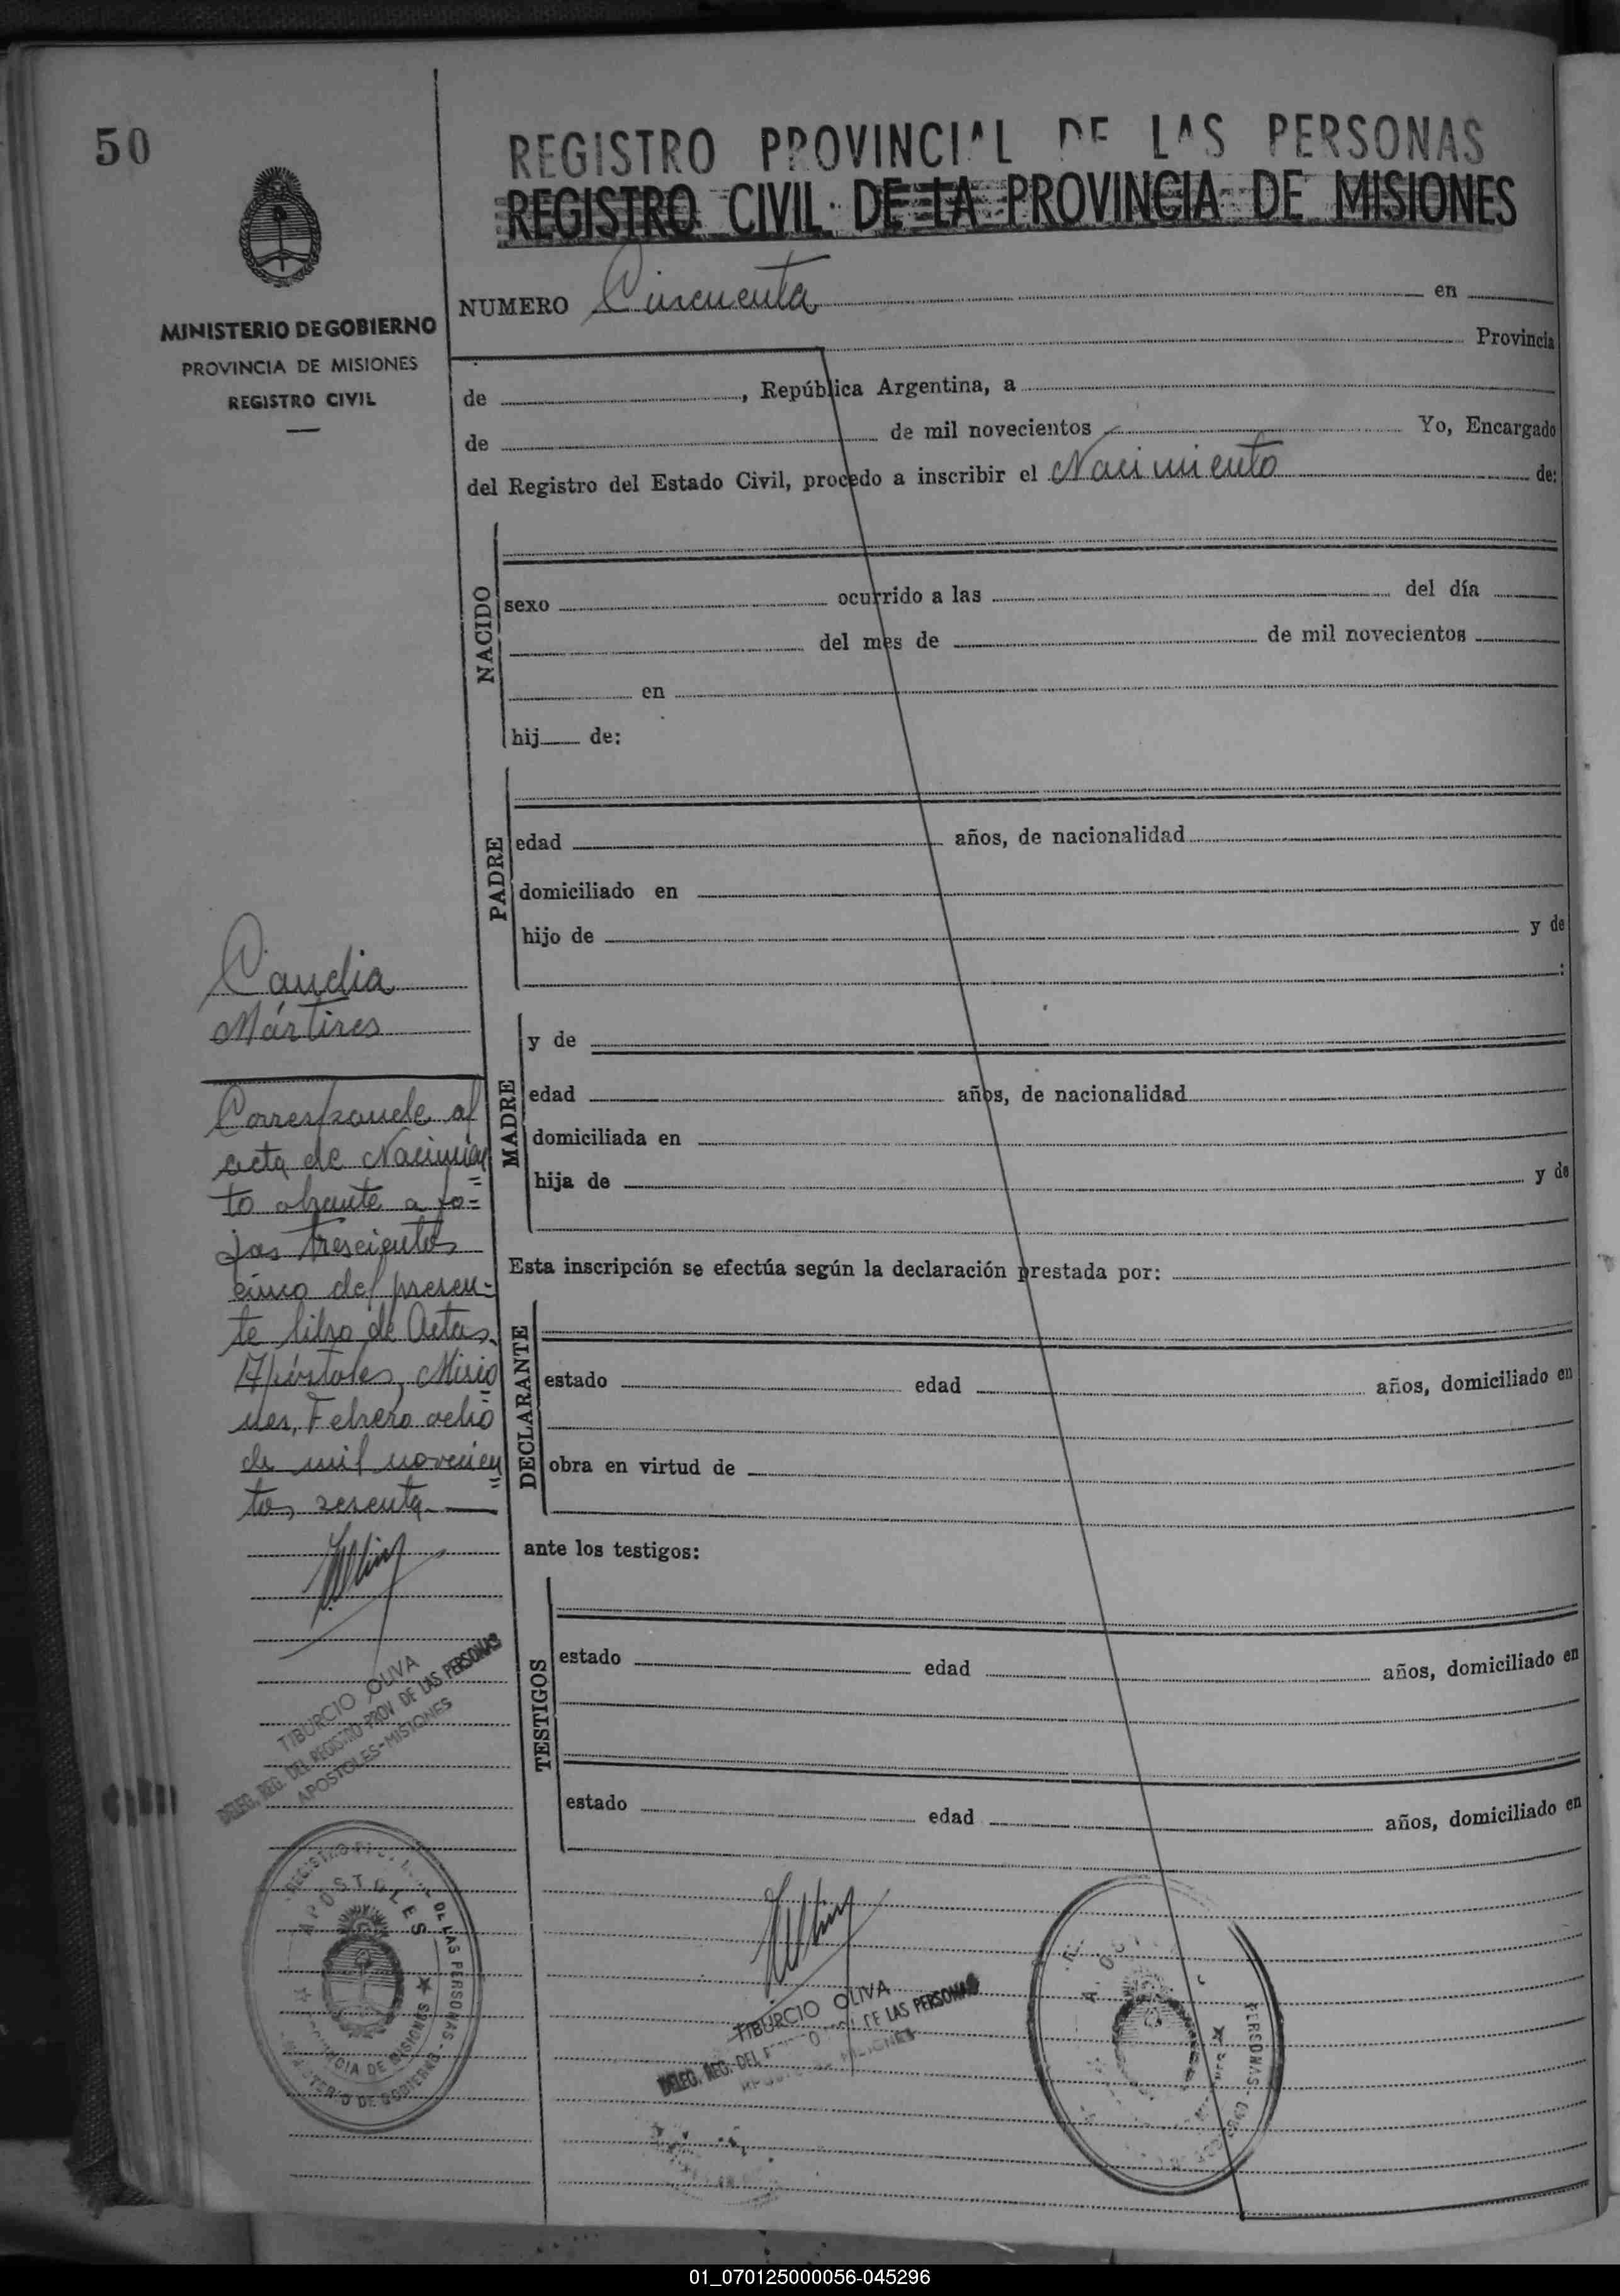 50
REGISTRO PROVINCIAL DE LAS PERSONAS
REGISTRO CIVIL DE LA PROVINCIA DE MISIONES
MINISTERIO DE GOBIERNO
PROVINCIA DE MISIONES
REGISTRO CIVIL
NUMERO Cincuenta en
Provincia
de , República Argentina, a
de de mil novecientos Yo, Encargado
del Registro del Estado Civil, procedo a inscribir el Nacimiento de:
NACIDO
sexo ocurrido a las del día
del mes de de mil novecientos
en
hij de:
PADRE
edad años, de nacionalidad
domiciliado en
hijo de y de
:
MADRE
y de
edad años, de nacionalidad
domiciliada en
hija de y de
Esta inscripción se efectúa según la declaración prestada por:
DECLARANTE
estado edad años, domiciliado en
obra en virtud de
ante los testigos:
TESTIGOS
estado edad años, domiciliado en
estado edad años, domiciliado en
Candia
Mártires
Corresponde al
acta de Nacimien
to obrante a fo=
jas trescientos
cinco del presen-
te libro de Actas.
Apóstoles, Misio
nes, Febrero ocho
de mil novecien
tos sesenta.
TIBURCIO OLIVA
DELEG. REG. DEL REGISTRO PROV. DE LAS PERSONAS
APOSTOLES-MISIONES
REGISTRO DE LAS PERSONAS-
APOSTOLES
PROVINCIA DE MISIONES
MINISTERIO DE GOBIERNO
TIBURCIO OLIVA
DELEG. REG. DEL DE LAS PERSONAS
MISIONES
PERSONAS-
01_070125000056-045296